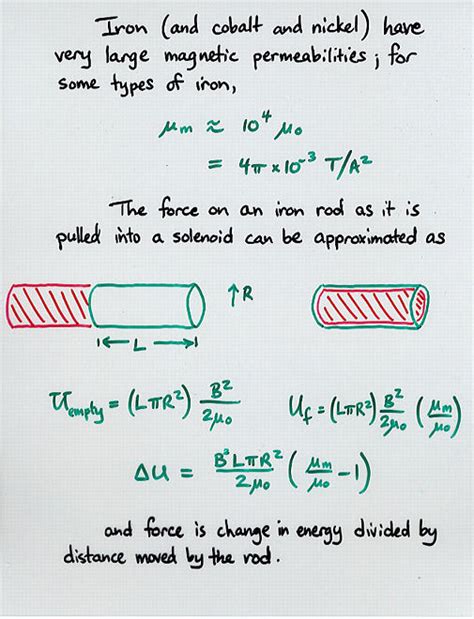 Iron (and cobalt and nickel) have
very large magnetic permeabilities ; for
some types of iron,
μm ≈ 10⁴ μ₀
= 4π × 10⁻³ T/A²
The force on an iron rod as it is
pulled into a solenoid can be approximated as
↑R
|← L →|
U_empty = (LπR²) B²/2μ₀ U_f = (LπR²) B²/2μ₀ (μm/μ₀)
ΔU = B²LπR²/2μ₀ (μm/μ₀ − 1)
and force is change in energy divided by
distance moved by the rod.